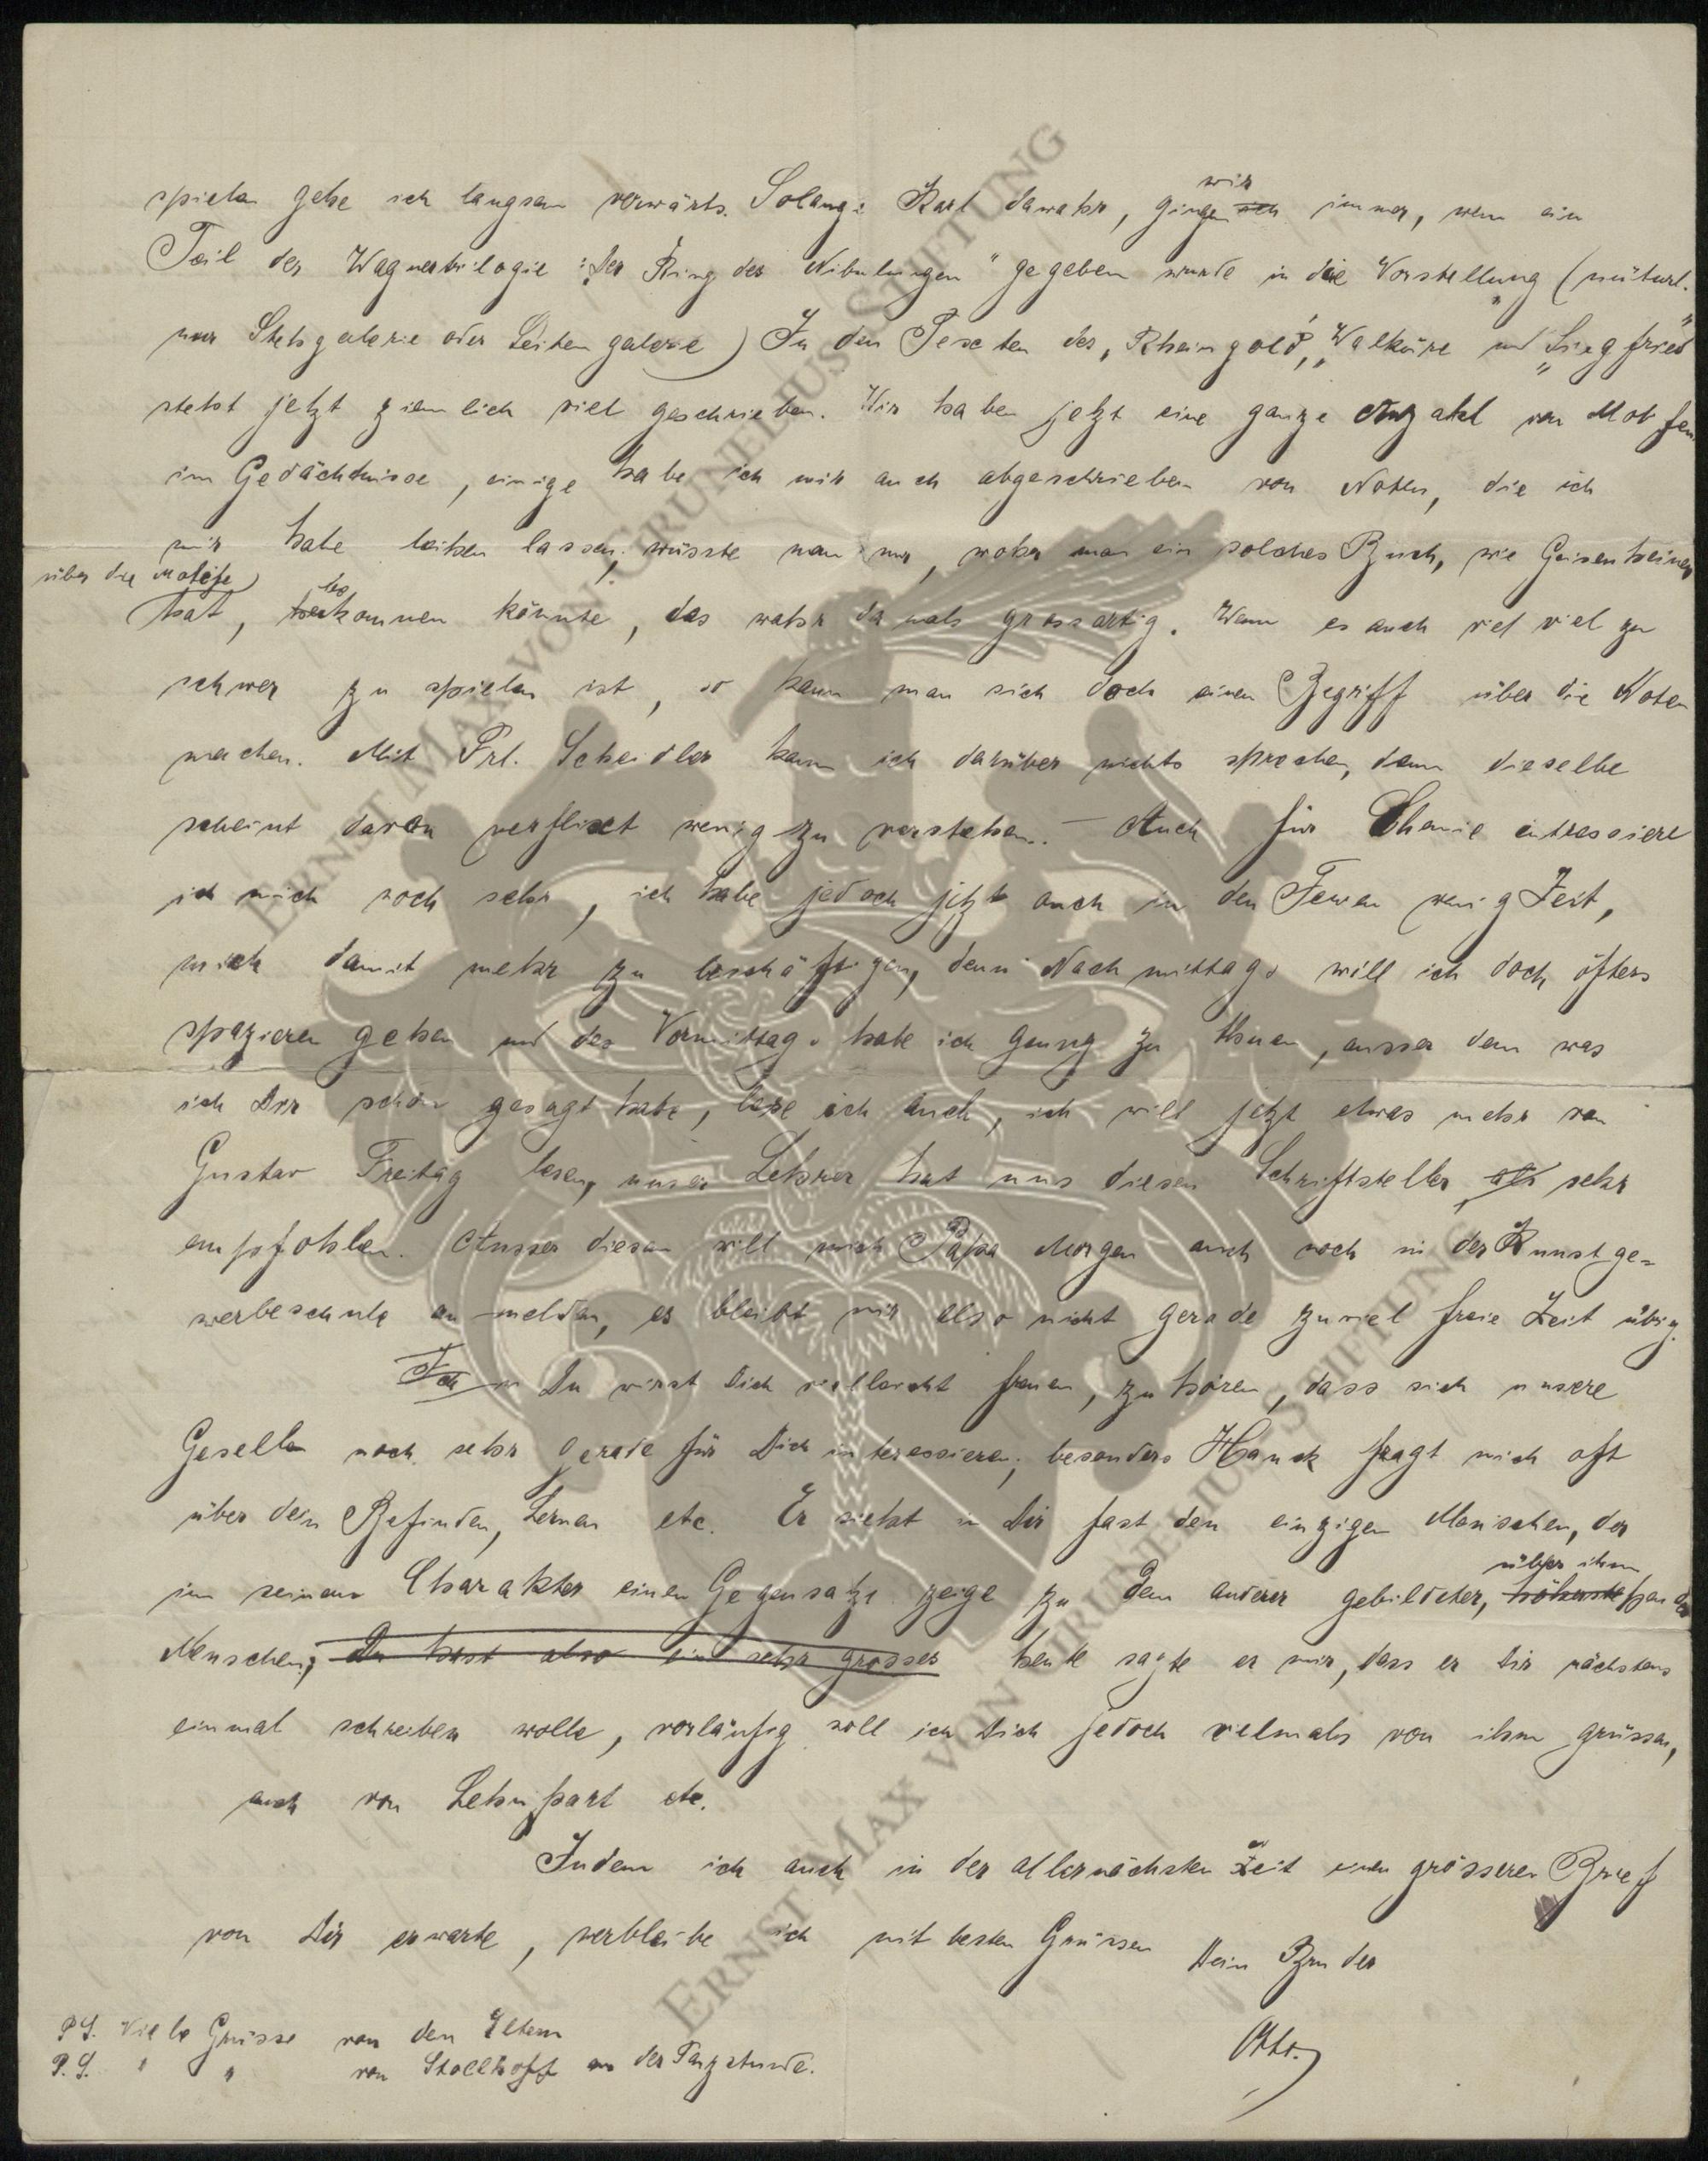 spielen gehe ich langsam vorwärts. Solange Karl dawahr, gingen ich wir immer, wenn ein
Teil der Wagnertrilogie: „Der Ring des Nibelungen" gegeben wurde in die Vorstellung (natürl.
nur Stehgalerie oder Seitengalerie) In den Texten des „Rheingold", „Walküre" und „Siegfried"
steht jetzt ziemlich viel geschrieben. Wir haben jetzt eine ganze Anzahl von Motifen
im Gedächtnisse, einige habe ich mir auch abgeschrieben von Noten, die ich
mir habe leihen lassen; wüsste man nur, woher man ein solches Buch, wie Geisenheiner
über die Motife
hat, bekommen könnte, das wahr damals grossartig. Wenn es auch viel viel zu
schwer zu spielen ist, so kann man sich doch einen Begriff über die Noten
machen. Mit Frl. Scheidler kann ich darüber nichts sprechen, denn dieselbe
scheint davon verflixt wenig zu verstehen. – Auch für Chemie intressiere
ich mich noch sehr, ich habe jedoch jetzt auch in den Ferien wenig Zeit,
mich damit mehr zu beschäftigen, denn Nachmittags will ich doch öfters
spazieren gehen und des Vormittags habe ich genug zu thuen, ausser dem was
ich Dir schon gesagt habe, lese ich auch, ich will jetzt etwas mehr von
Gustav Freitag lesen, unser Lehrer hat uns diesen Schriftsteller sehr
empfohlen. Ausser diesem will mich Papa Morgen auch noch in der Kunstge=
werbeschule an-melden, es bleibt mir also nicht gerade zuviel freie Zeit übrig.
Ich Du wirst Dich vielleicht freuen, zu hören, dass sich unsere
Gesellen noch sehr gerade für Dich interessieren; besonders Hanck fragt mich oft
über dein Befinden, Lernen etc. Er sieht in Dir fast den einzigen Menschen, der
in seinem Charakter einen Gegensatz zeige zu dem anderer gebildeter, über ihm stehender
Menschen; Du hast also ein sehr grosses heute sagte er mir, dass er Dir nächstens
einmal schreiben wolle, vorläufig soll ich Dich jedoch vielmals von ihm grüssen,
auch von Lehnhart etc.
Indem ich auch in der allernächsten Zeit einen grösseren Brief
von Dir erwarte, verbleibe ich mit besten Grüssen Dein Bruder
Otto.
P.S. Viele Grüsse von den Eltern
P.S. " " von Stollhoff aus der Tanzstunde.
ERNST MAX VON GRUNELIUS-STIFTUNG
ERNST MAX VON GRUNELIUS-STIFTUNG